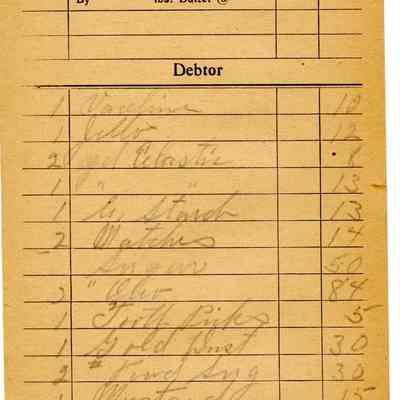 By lbs. Butter @
Debtor
1 Vaseline 10
1 Jello 12
2 yd Elastic 8
1 " " 13
1 Starch 13
2 Matches 14
Sugar 50
2 " Oleo 84
1 Tooth Picks 5
1 Gold Dust 30
2 # Sug 30
1 Mustard 15